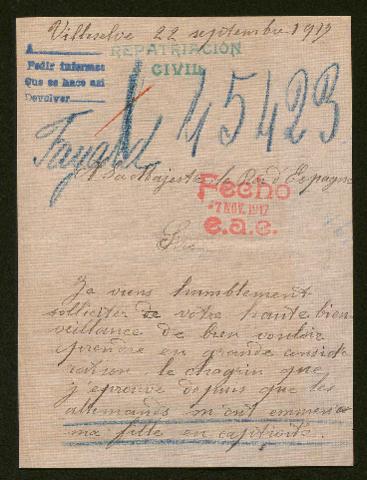 Villeselve 22 septembre 1917
A
REPATRIACIÓN
CIVIL
Pedir informes
Que se hace así
Devolver
45423
Fayard
A Sa Majesté le Roi d'Espagne
Fecho
7 NOV. 1917
e.a.e.
Sire
Je viens humblement
solliciter de votre haute bien
veillance de bien vouloir
prendre en grande considé
ration le chagrin que
j'éprouve depuis que les
allemands m'ont emmenée
ma fille en captivité.